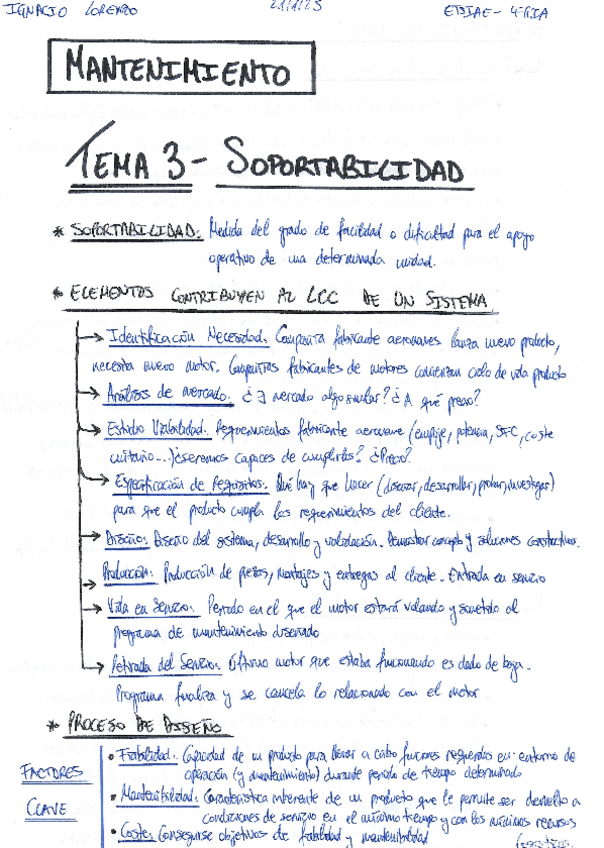 IGNACIO LORENZO 21/1/25 ETSIAE - 4ºGIA
MANTENIMIENTO
TEMA 3 - SOPORTABILIDAD
* SOPORTABILIDAD: Medida del grado de facilidad o dificultad para el apoyo
operativo de una determinada unidad.
* ELEMENTOS CONTRIBUYEN AL LCC DE UN SISTEMA
→ Identificación Necesidad: Compañía fabricante aeronaves lanza nuevo producto,
necesita nuevo motor. Compañías fabricantes de motores comienzan ciclo de vida producto
→ Análisis de mercado: ¿∃ mercado algo similar? ¿A qué precio?
→ Estudio Viabilidad: Requerimientos fabricante aeronave (empuje, potencia, SFC, coste
unitario...) ¿seremos capaces de cumplirlos? ¿Precio?
→ Especificación de Requisitos: Qué hay que hacer (diseñar, desarrollar, probar, investigar)
para que el producto cumpla los requerimientos del cliente.
→ Diseño: Diseño del sistema, desarrollo y validación. Demostrar concepto y soluciones constructivas.
Producción: Producción de piezas, montajes y entregas al cliente. Entrada en servicio
→ Vida en Servicio: Periodo en el que el motor estará volando y sometido al
programa de mantenimiento diseñado
→ Retirada del Servicio: Último motor que estaba funcionando es dado de baja.
Programa finaliza y se cancela lo relacionado con el motor
* PROCESO DE DISEÑO
FACTORES
CLAVE
• Fiabilidad: Capacidad de un producto para llevar a cabo funciones requeridas en entorno de
operación (y mantenimiento) durante periodo de tiempo determinado
• Mantenibilidad: Característica inherente de un producto que le permite ser devuelto a
condiciones de servicio en el mínimo tiempo y con los mínimos recursos
• Coste: Conseguirse objetivos de fiabilidad y mantenibilidad